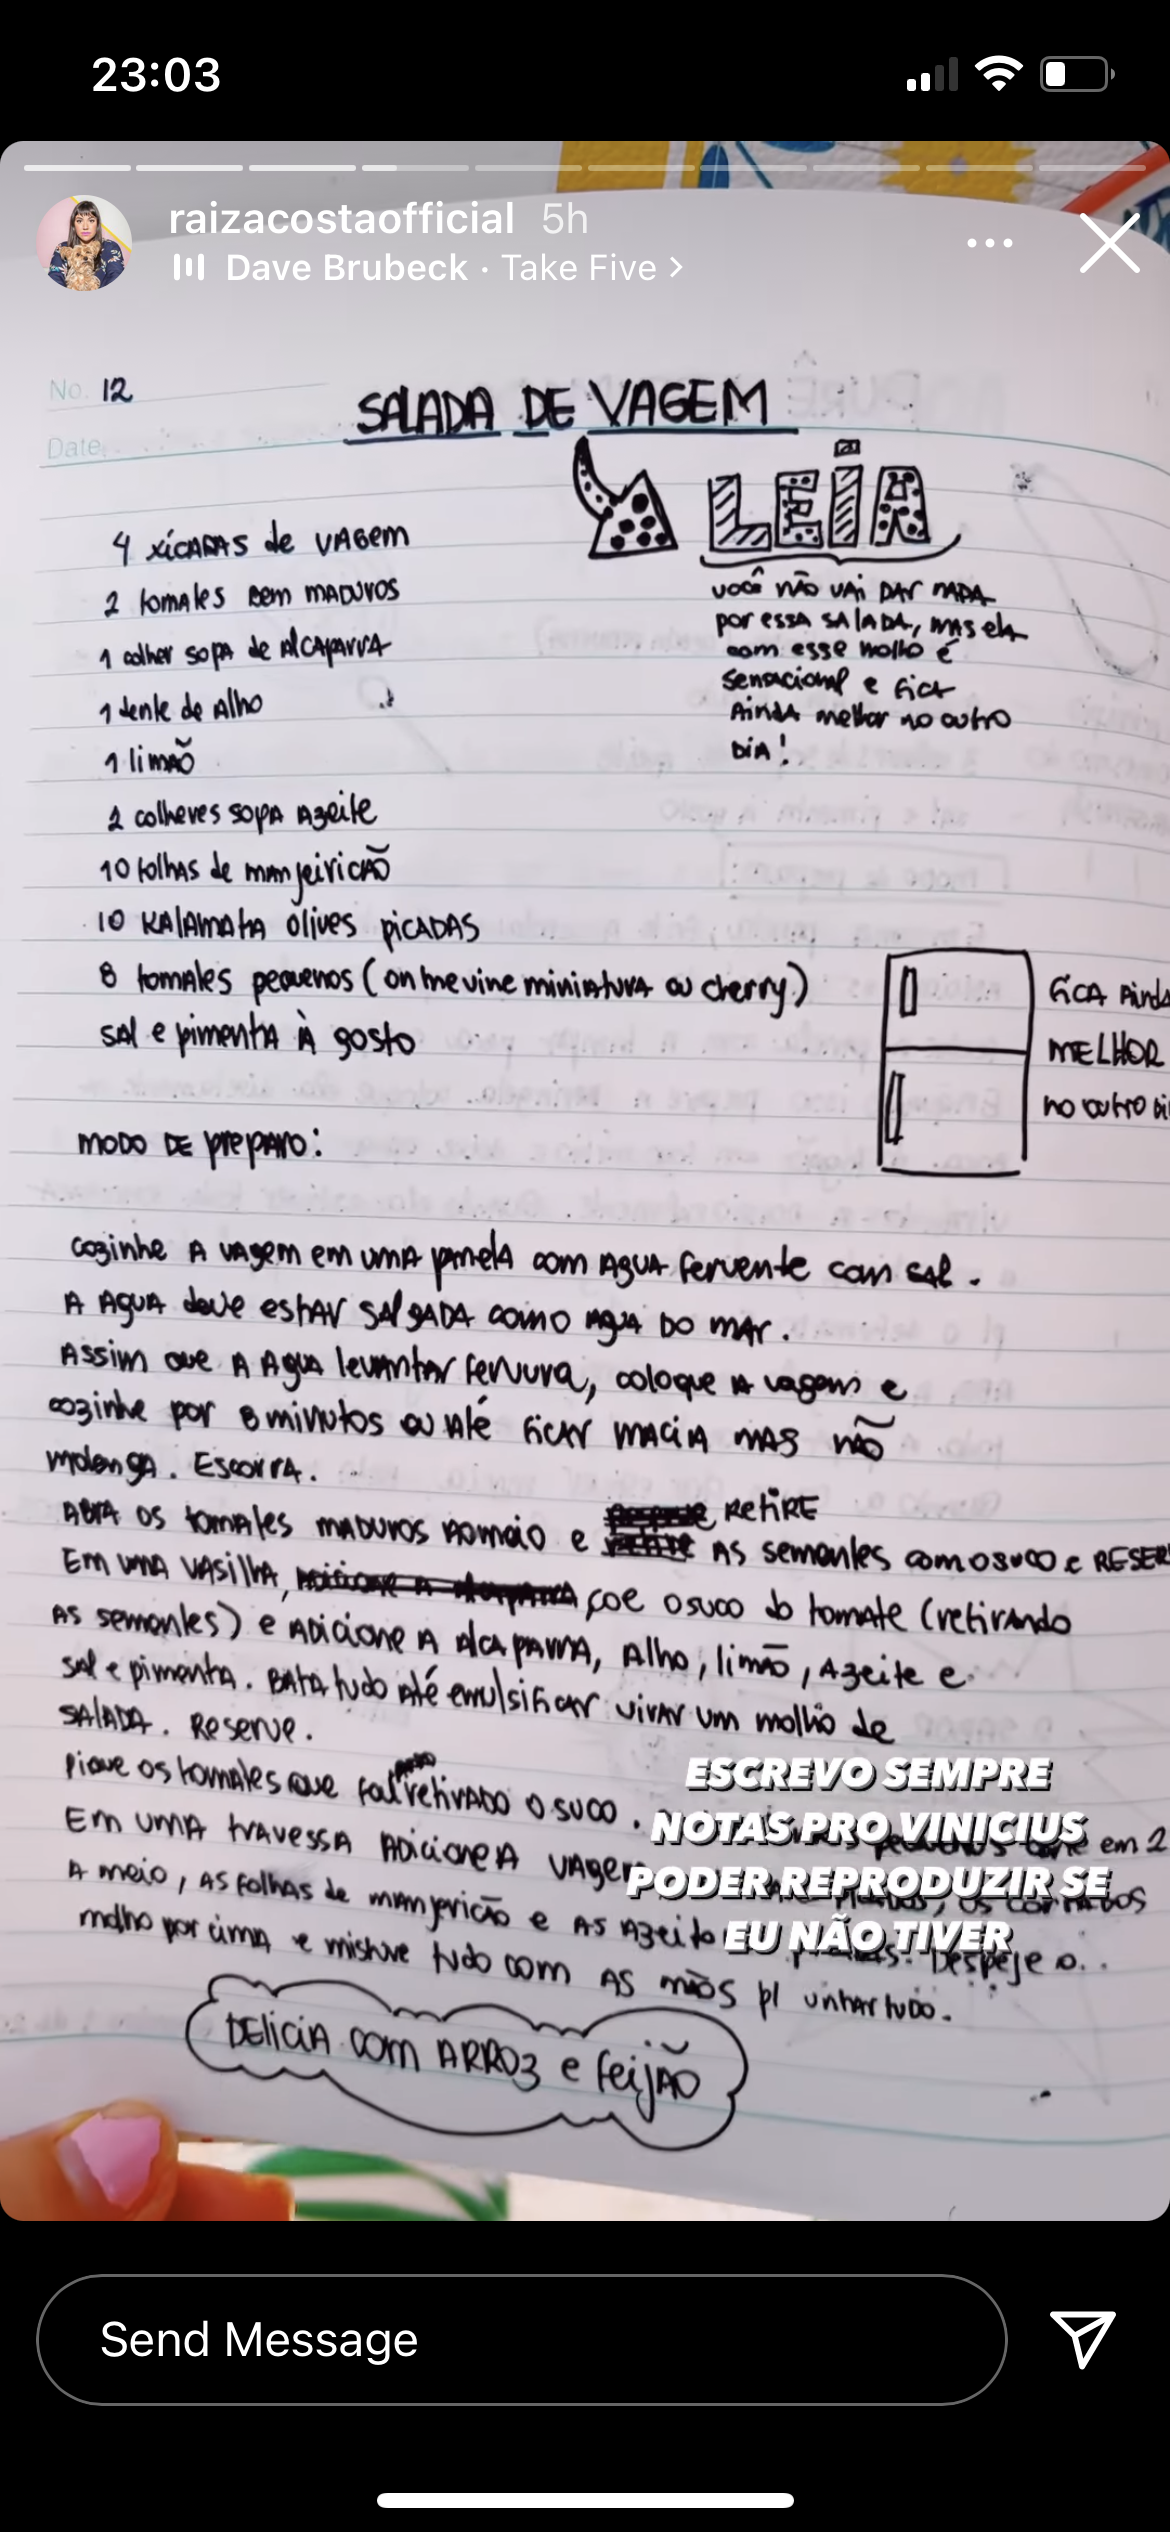 23:03
raizacostaofficial 5h
Dave Brubeck · Take Five >
No. 12
SALADA DE VAGEM
Date
LEIA
4 xícaras de vagem
2 tomates bem maduros
1 colher sopa de alcaparra
1 dente de alho
1 limão
2 colheres sopa azeite
10 folhas de manjericão
10 kalamata olives picadas
8 tomates pequenos (on the vine miniatura ou cherry)
sal e pimenta à gosto
você não vai dar nada
por essa salada, mas ela
com esse molho é
sensacional e fica
ainda melhor no outro
dia!
fica ainda
melhor
no outro di
modo de preparo:
cozinhe a vagem em uma panela com agua fervente com sal.
a agua deve estar salgada como agua do mar.
Assim que a agua levantar fervura, coloque a vagem e
cozinhe por 8 minutos ou até ficar macia mas não
molenga. Escorra.
Abra os tomates maduros ao meio e retire
as sementes com o suco e reser
Em uma vasilha, coe o suco do tomate (retirando
as sementes) e adicione a alcaparra, alho, limão, azeite e
sal e pimenta. Bata tudo até emulsificar virar um molho de
salada. Reserve.
pique os tomates que foi retirado o suco. pequenos em 2
Em uma travessa adicione a vagem os cortados
a meio, as folhas de manjericão e as azeito Despeje o..
molho por cima e misture tudo com as mãos p/ untar tudo.
Delicia com arroz e feijão
ESCREVO SEMPRE
NOTAS PRO VINICIUS
PODER REPRODUZIR SE
EU NÃO TIVER
Send Message